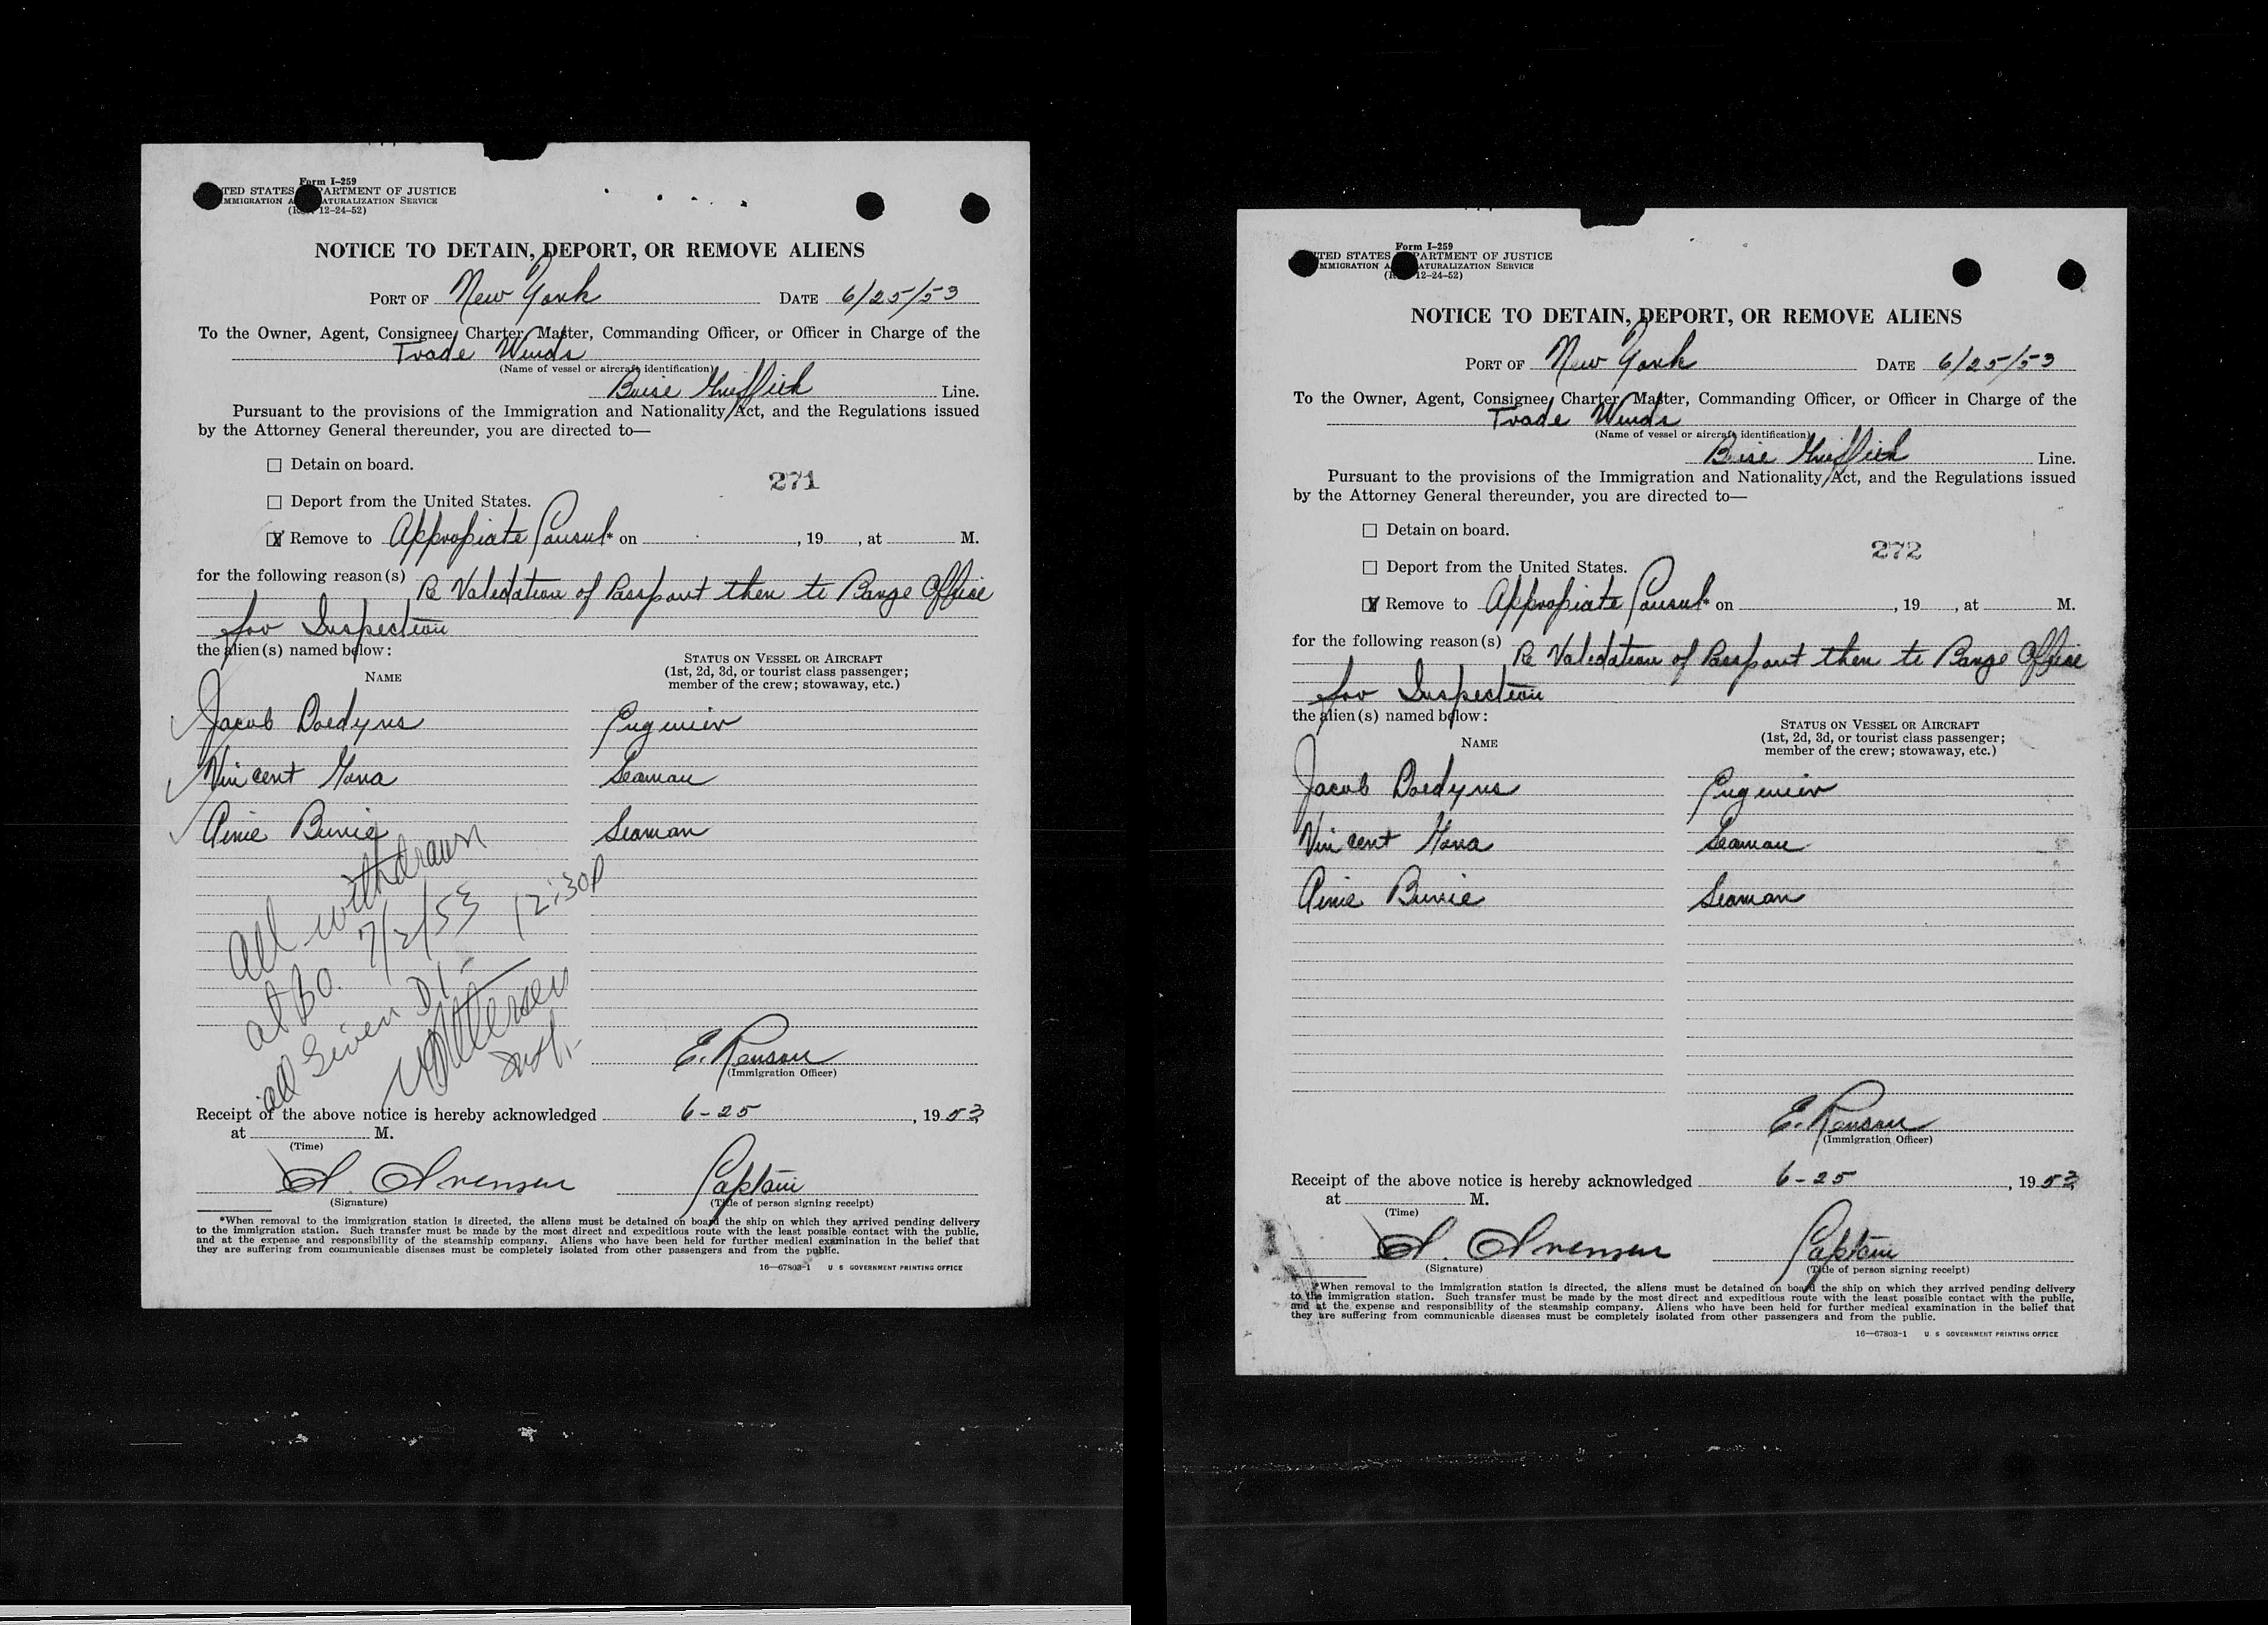 Form I-259
TED STATES PARTMENT OF JUSTICE
MMIGRATION A ATURALIZATION SERVICE
12-24-52)
NOTICE TO DETAIN, DEPORT, OR REMOVE ALIENS
PORT OF New York DATE 6/25/53
To the Owner, Agent, Consignee, Charter, Master, Commanding Officer, or Officer in Charge of the
Trade Winds
(Name of vessel or aircraft identification)
Boise Griffich Line.
Pursuant to the provisions of the Immigration and Nationality Act, and the Regulations issued
by the Attorney General thereunder, you are directed to—
☐ Detain on board.
271
☐ Deport from the United States.
☒ Remove to Appropiate Consul* on , 19 , at M.
for the following reason(s) Re Validation of Passport then to Barge Office
for Inspection
the alien(s) named below:
NAME
STATUS ON VESSEL OR AIRCRAFT
(1st, 2d, 3d, or tourist class passenger;
member of the crew; stowaway, etc.)
Jacob Doedyns Engineer
Vincent Seaman
Seaman
All withdrawn
at BO. 7/2/53 12:30P
all Given D1
E. Renson
(Immigration Officer)
Receipt of the above notice is hereby acknowledged 6-25, 1953
at M.
(Time)
Captain
(Signature) (Title of person signing receipt)
*When removal to the immigration station is directed, the aliens must be detained on board the ship on which they arrived pending delivery
to the immigration station. Such transfer must be made by the most direct and expeditious route with the least possible contact with the public,
and at the expense and responsibility of the steamship company. Aliens who have been held for further medical examination in the belief that
they are suffering from communicable diseases must be completely isolated from other passengers and from the public.
16—67803-1 U S GOVERNMENT PRINTING OFFICE
Form I-259
TED STATES PARTMENT OF JUSTICE
MMIGRATION A ATURALIZATION SERVICE
12-24-52)
NOTICE TO DETAIN, DEPORT, OR REMOVE ALIENS
PORT OF New York DATE 6/25/53
To the Owner, Agent, Consignee, Charter, Master, Commanding Officer, or Officer in Charge of the
Trade Winds
(Name of vessel or aircraft identification)
Boise Griffich Line.
Pursuant to the provisions of the Immigration and Nationality Act, and the Regulations issued
by the Attorney General thereunder, you are directed to—
☐ Detain on board.
272
☐ Deport from the United States.
☒ Remove to Appropiate Consul* on , 19 , at M.
for the following reason(s) Re Validation of Passport then to Barge Office
for Inspection
the alien(s) named below:
NAME
STATUS ON VESSEL OR AIRCRAFT
(1st, 2d, 3d, or tourist class passenger;
member of the crew; stowaway, etc.)
Jacob Doedyns Engineer
Vincent Seaman
Seaman
E. Renson
(Immigration Officer)
Receipt of the above notice is hereby acknowledged 6-25, 1953
at M.
(Time)
Captain
(Signature) (Title of person signing receipt)
*When removal to the immigration station is directed, the aliens must be detained on board the ship on which they arrived pending delivery
to the immigration station. Such transfer must be made by the most direct and expeditious route with the least possible contact with the public,
and at the expense and responsibility of the steamship company. Aliens who have been held for further medical examination in the belief that
they are suffering from communicable diseases must be completely isolated from other passengers and from the public.
16—67803-1 U S GOVERNMENT PRINTING OFFICE